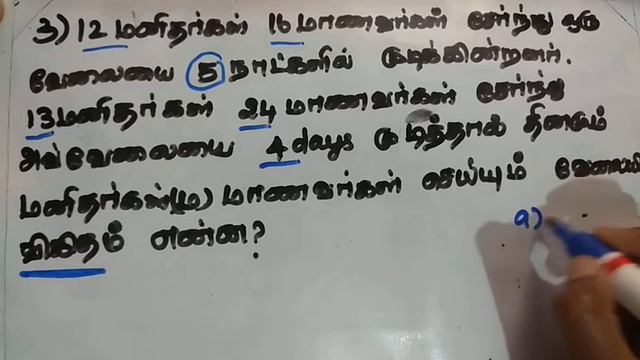 3) 12 மனிதர்கள் 16 மாணவர்கள் சேர்ந்து ஒரு
வேலையை 5 நாட்களில் முடிக்கின்றனர்.
13 மனிதர்கள் 24 மாணவர்கள் சேர்ந்து
அவ்வேலையை 4 days முடித்தால் தினமும்
மனிதர்கள்(ம) மாணவர்கள் செய்யும்
விகிதம் என்ன?
a)